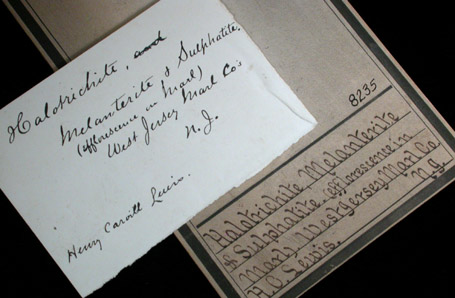 Halotrichite, and
Melanterite & Sulphatite.
(efflorescence in Marl)
West Jersey Marl Co's
N.J.
Henry Carvill Lewis.
8235
Halotrichite Melanterite
& Sulphatite (efflorescence in
Marl) West Jersey Marl Co
N.J.
H.C. Lewis.